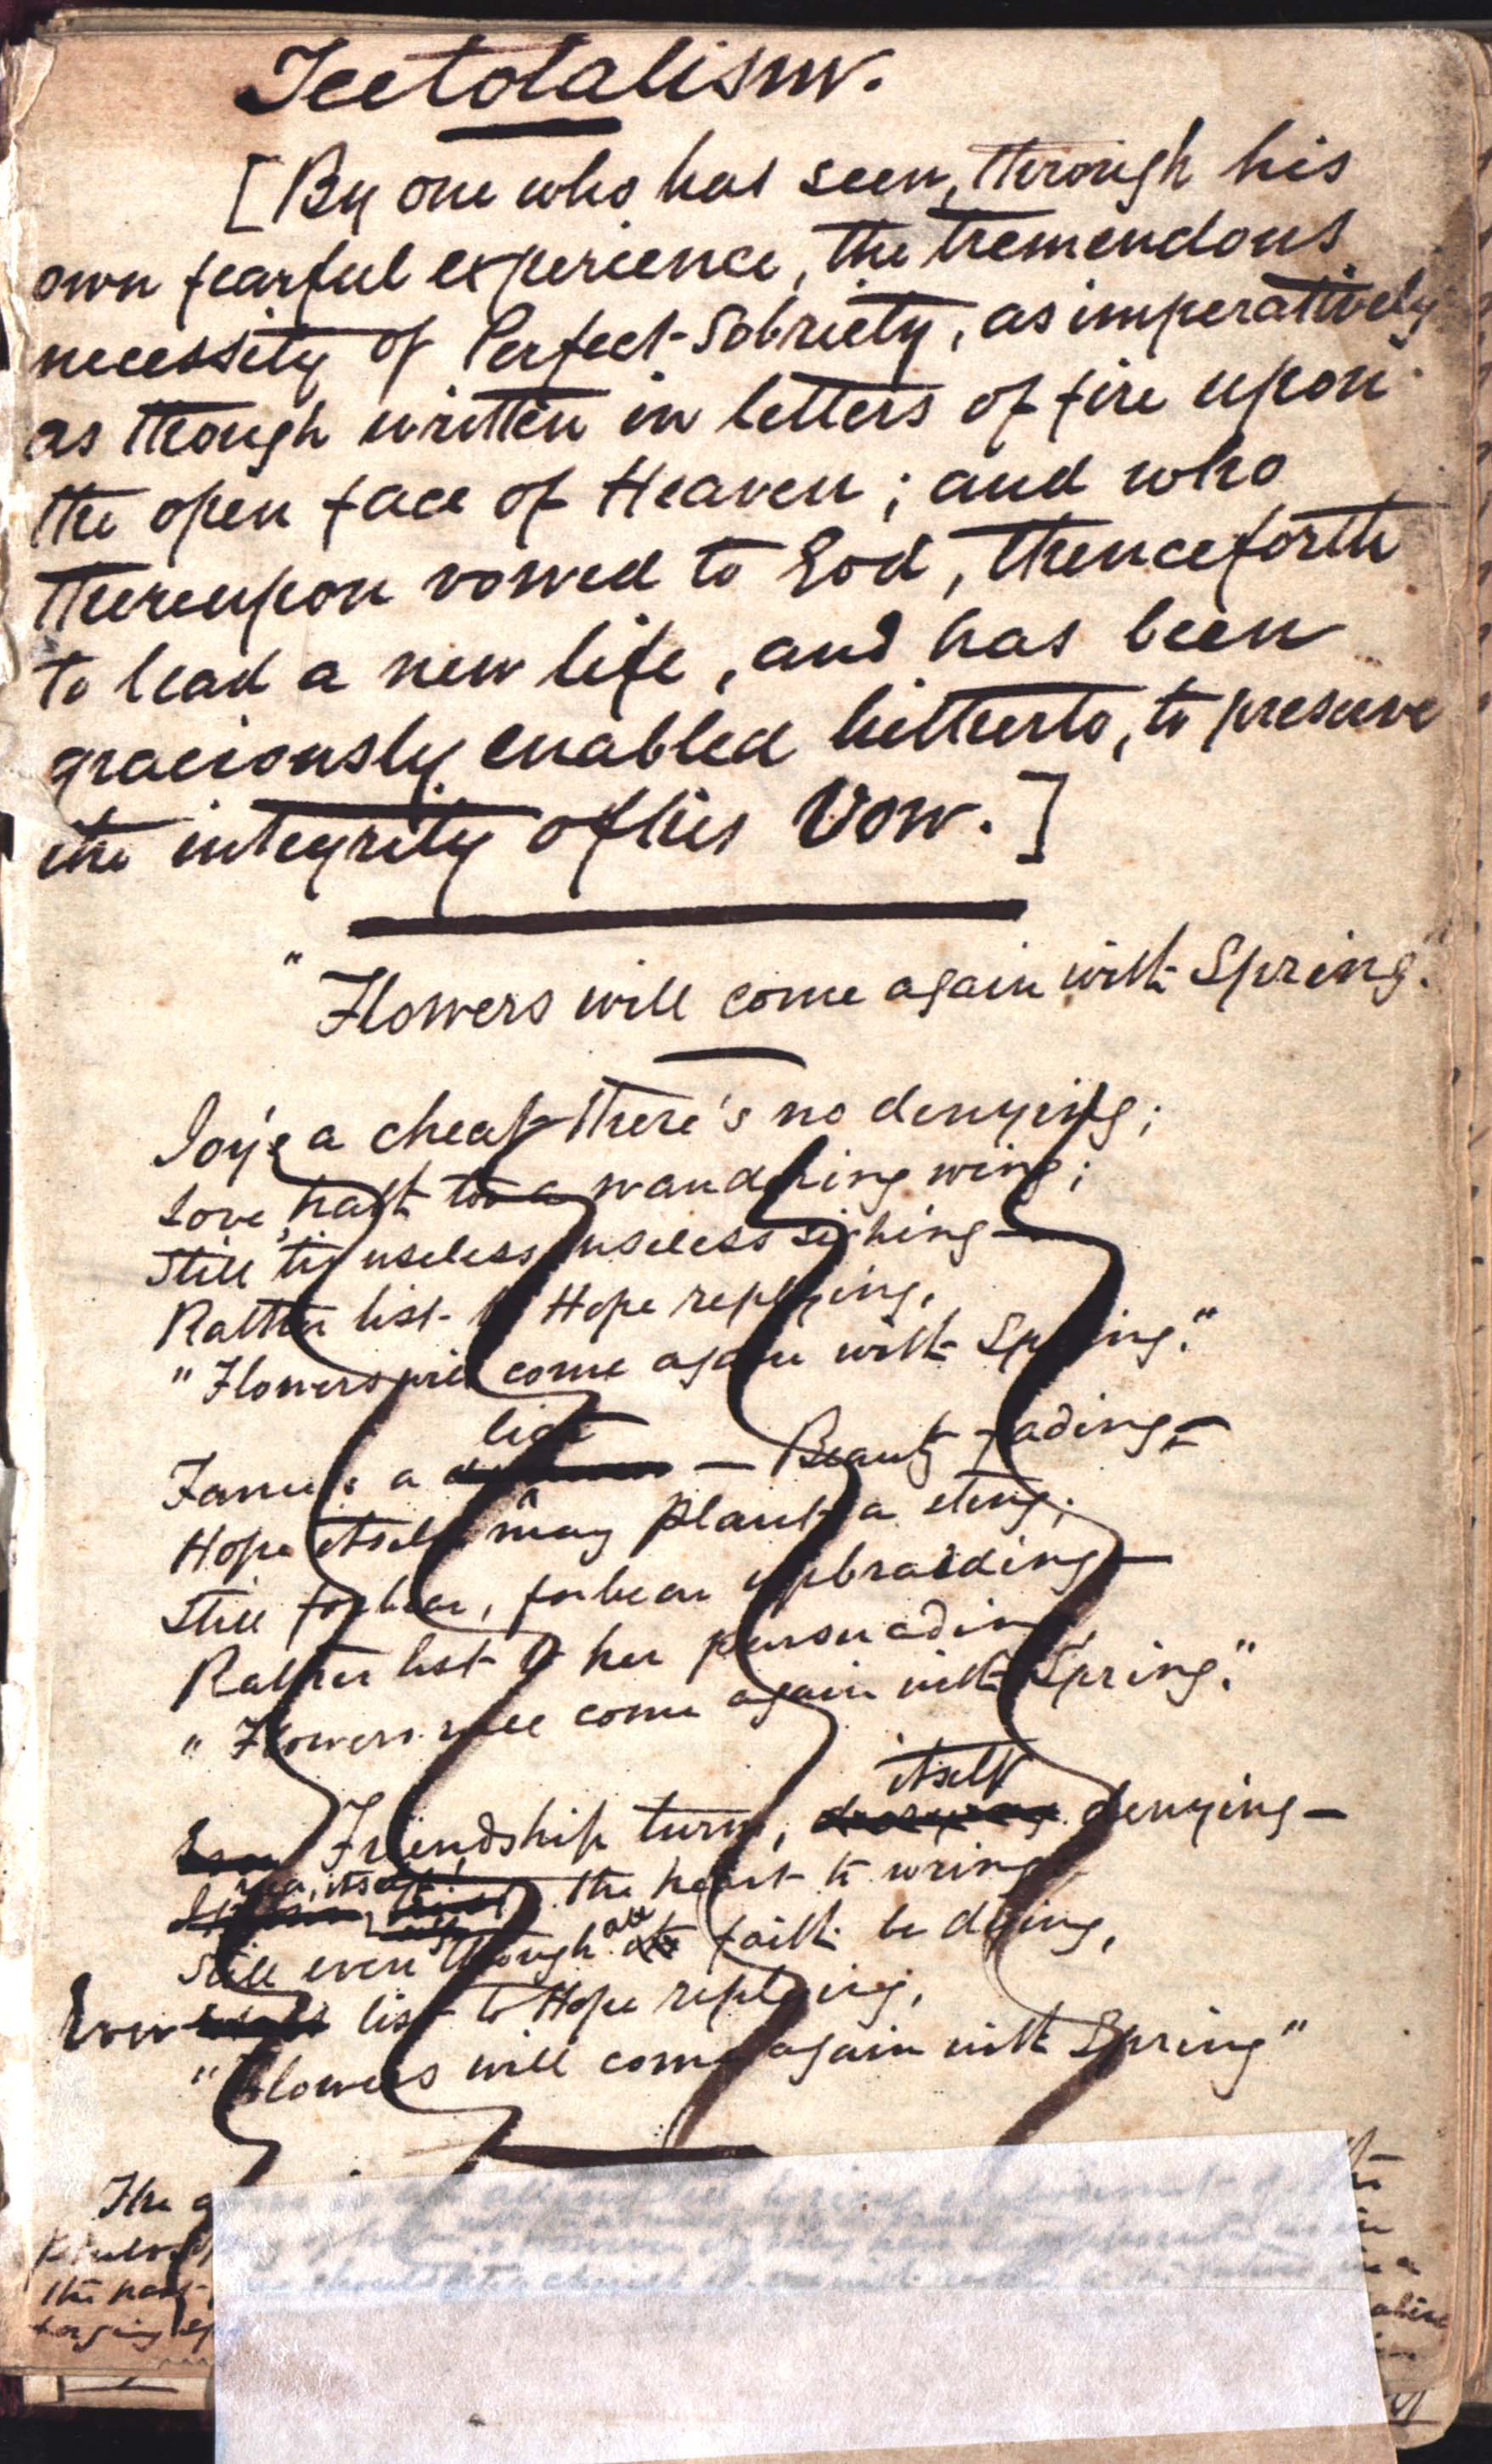 Teetotalism.
[By one who has seen, through his
own fearful experience, the tremendous
necessity of Perfect-Sobriety, as imperatively
as though written in letters of fire upon
the open face of Heaven; and who
thereupon vowed to God, thenceforth
to lead a new life, and has been
graciously enabled hitherto, to preserve
the integrity of his Vow.]
"Flowers will come again with Spring."
Joy's a cheat there's no denying;
Love hath too a wandering wing;
Still 'tis useless, useless sighing—
Rather list to Hope replying,
"Flowers will come again with Spring."
lie
Fame's a — Beauty fading—
Hope itself may plant a sting;
Still forbear, forbear upbraiding—
Rather list to her persuading
"Flowers will come again with Spring."
itself
Friendship turns, denying—
itself the heart to wring
Still even though all faith be dying,
Even list to Hope replying,
"Flowers will come again with Spring"
The
the